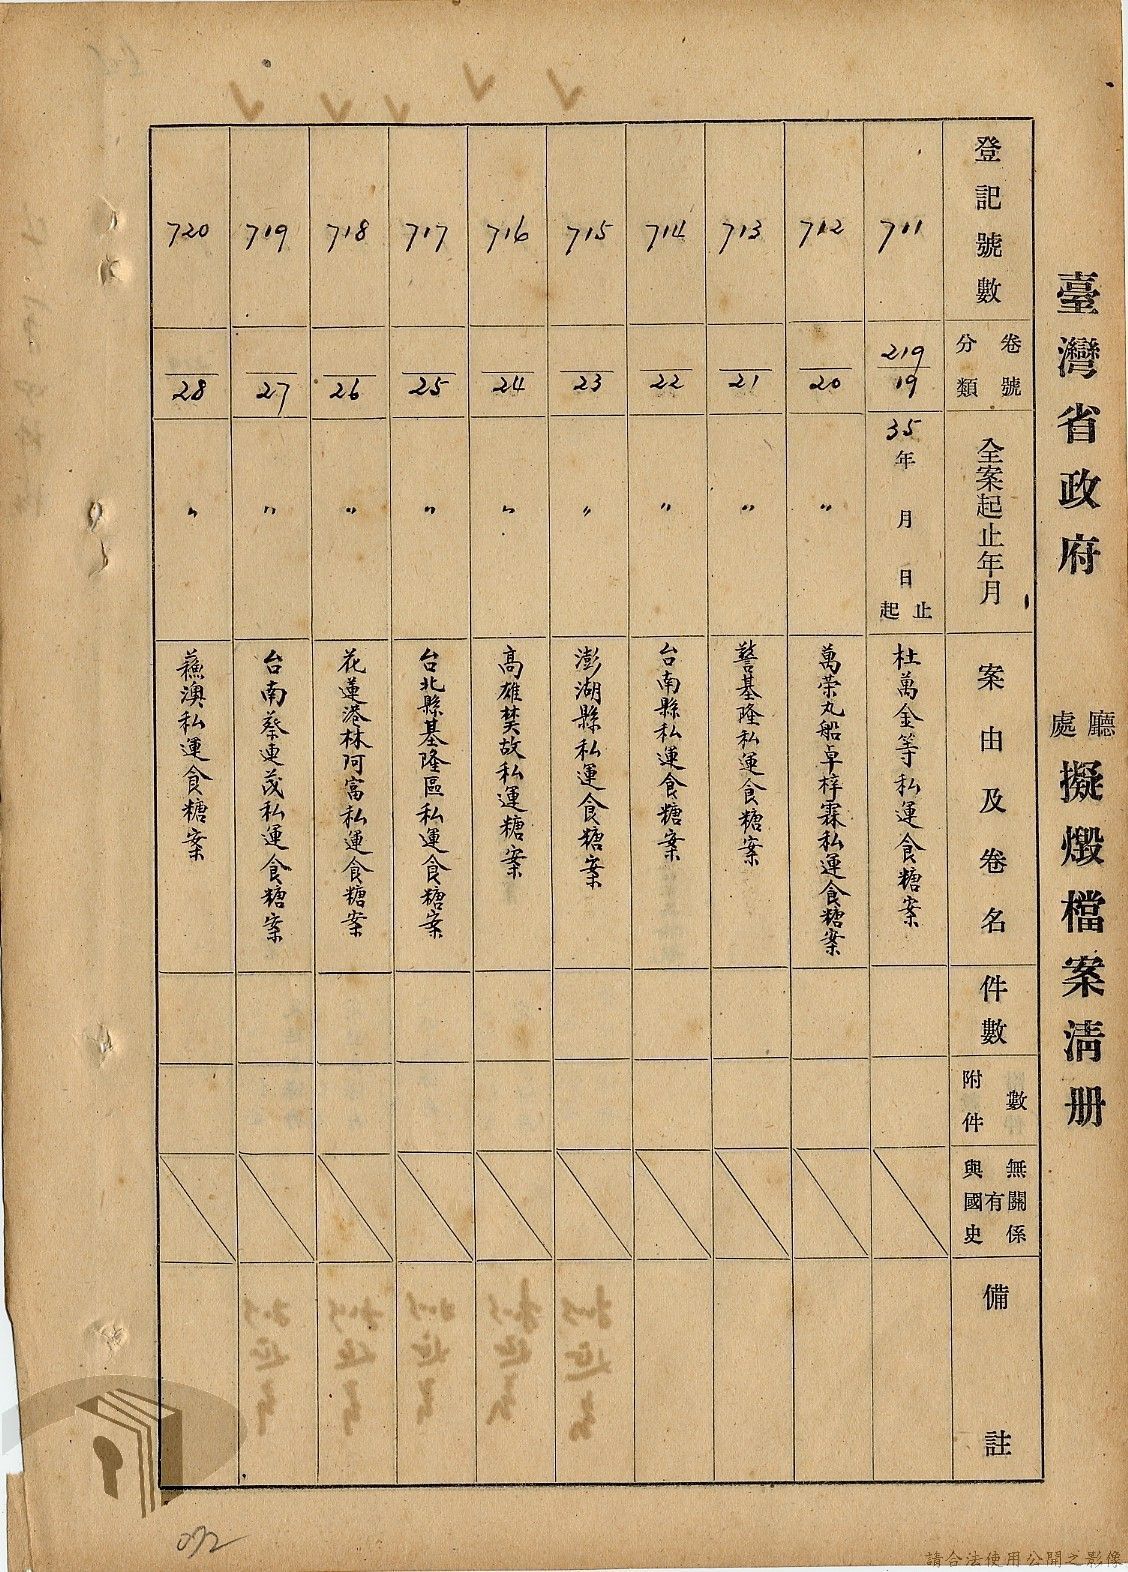 臺灣省政府 廳處 擬燬檔案清册
登記號數
卷號
分類
全案起止年月
案由及卷名
件數
附件數
與國史有無關係
備註
711
219
19
35年 月 日 起止
杜萬金等私運食糖案
712
20
〃
萬荣丸船卓梓霖私運食糖案
713
21
〃
基隆私運食糖案
714
22
〃
台南縣私運食糖案
715
23
〃
澎湖縣私運食糖案
716
24
〃
高雄樊故私運糖案
717
25
〃
台北縣基隆區私運食糖案
718
26
〃
花蓮港林阿富私運食糖案
719
27
〃
台南蔡連茂私運食糖案
720
28
〃
蘓澳私運食糖案
092
請合法使用公開之影像